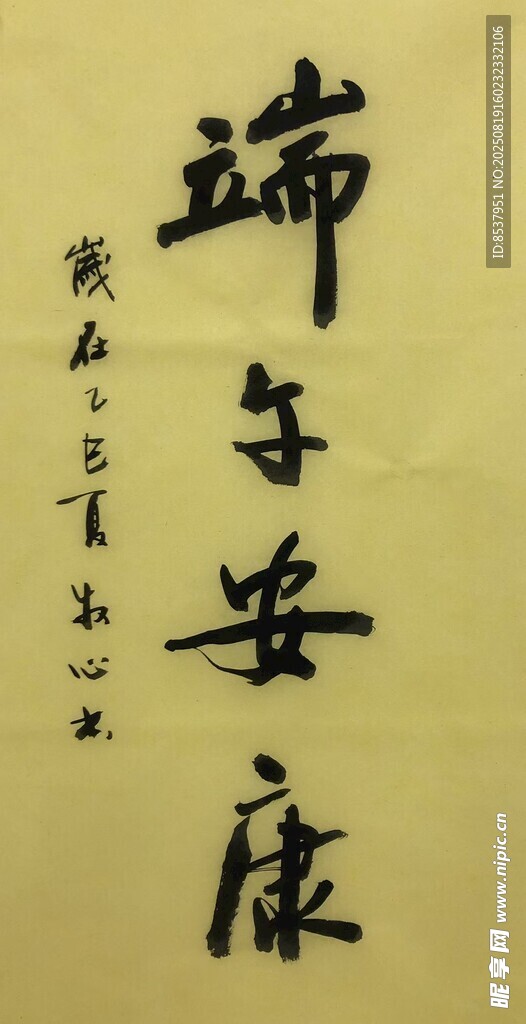 端午安康
歲在乙巳夏牧心书
ID:8537951 NO:20250819160232332106
昵享网 www.nipic.cn